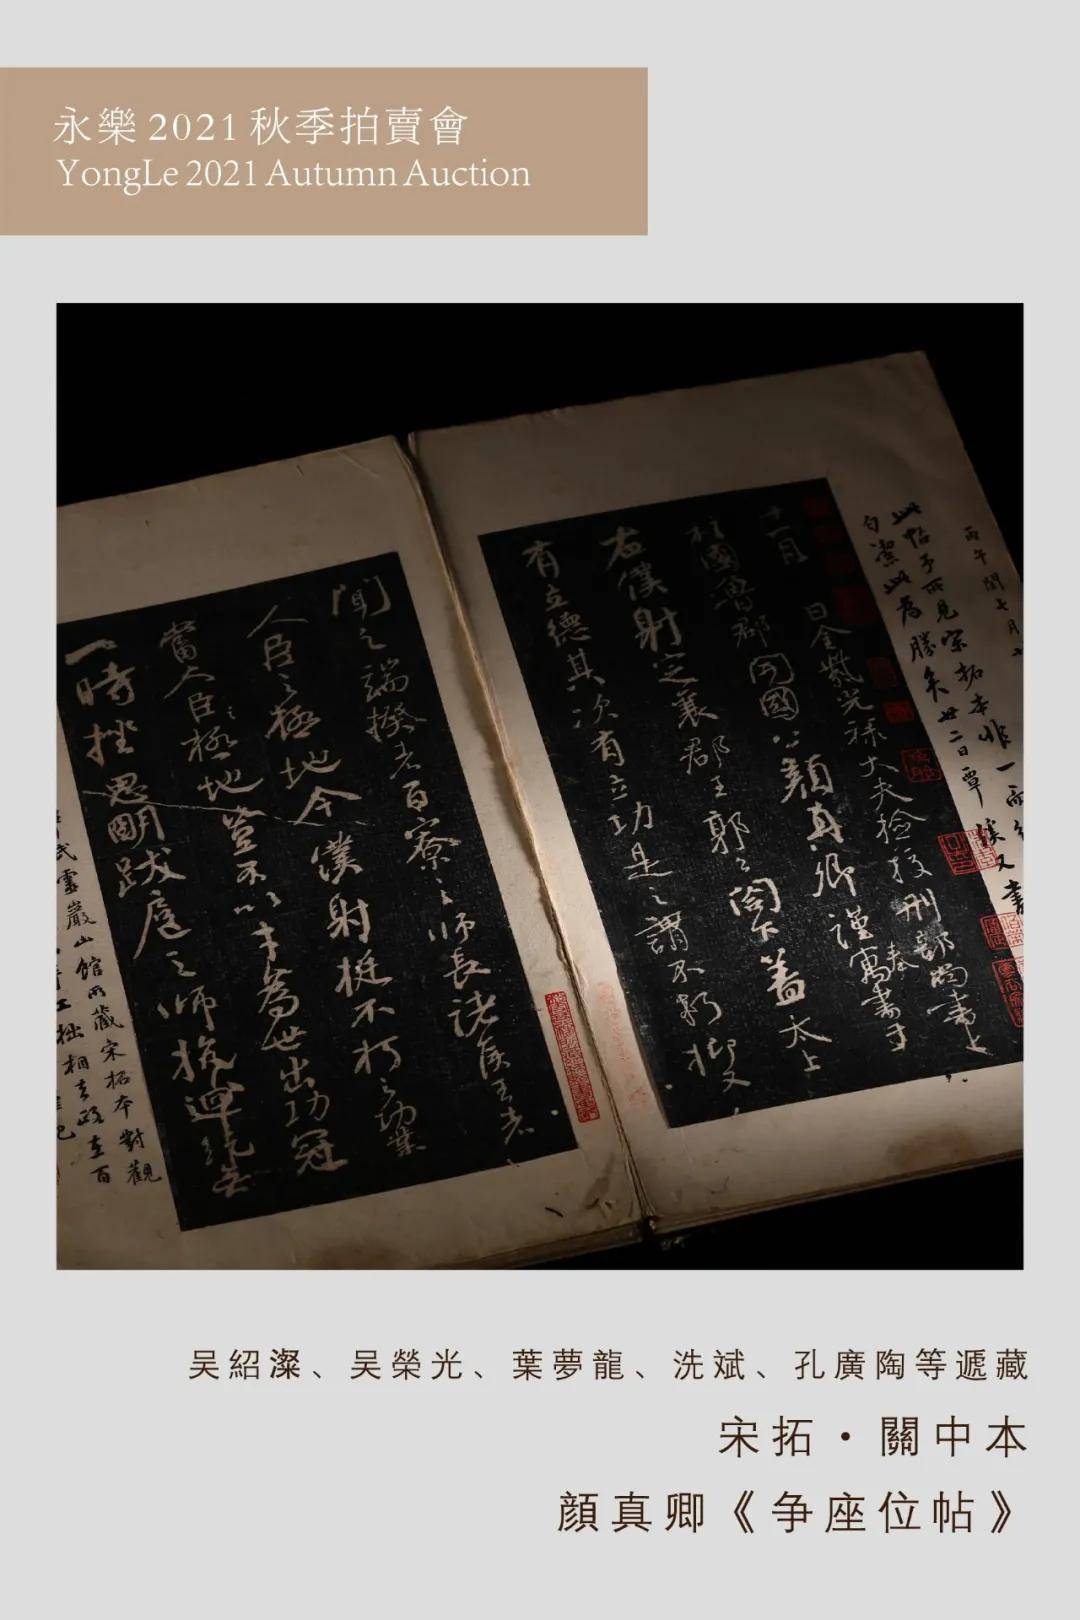 永樂 2021 秋季拍賣會
YongLe 2021 Autumn Auction
丙午閏七月
此帖予所見宋拓本非一而
潔此為勝矣廿二日覃谿又書
十一月 日金紫光祿大夫檢校刑部尚書上
柱國魯郡開國公顏真卿謹奉寓書于
右僕射定襄郡王郭公閣下蓋太上
有立德其次有立功是之謂不朽抑又
聞之端揆者百寮之師長諸侯王者
人臣之極地今僕射挺不朽之功業
當人臣極地豈不以才為世出功冠
一時挫思明跋扈之師抗迴紇無
武靈巖山館所藏宋拓本對觀
工拙相去政在百
吴紹澯、吴榮光、葉夢龍、洗斌、孔廣陶等遞藏
宋拓·關中本
顏真卿《争座位帖》